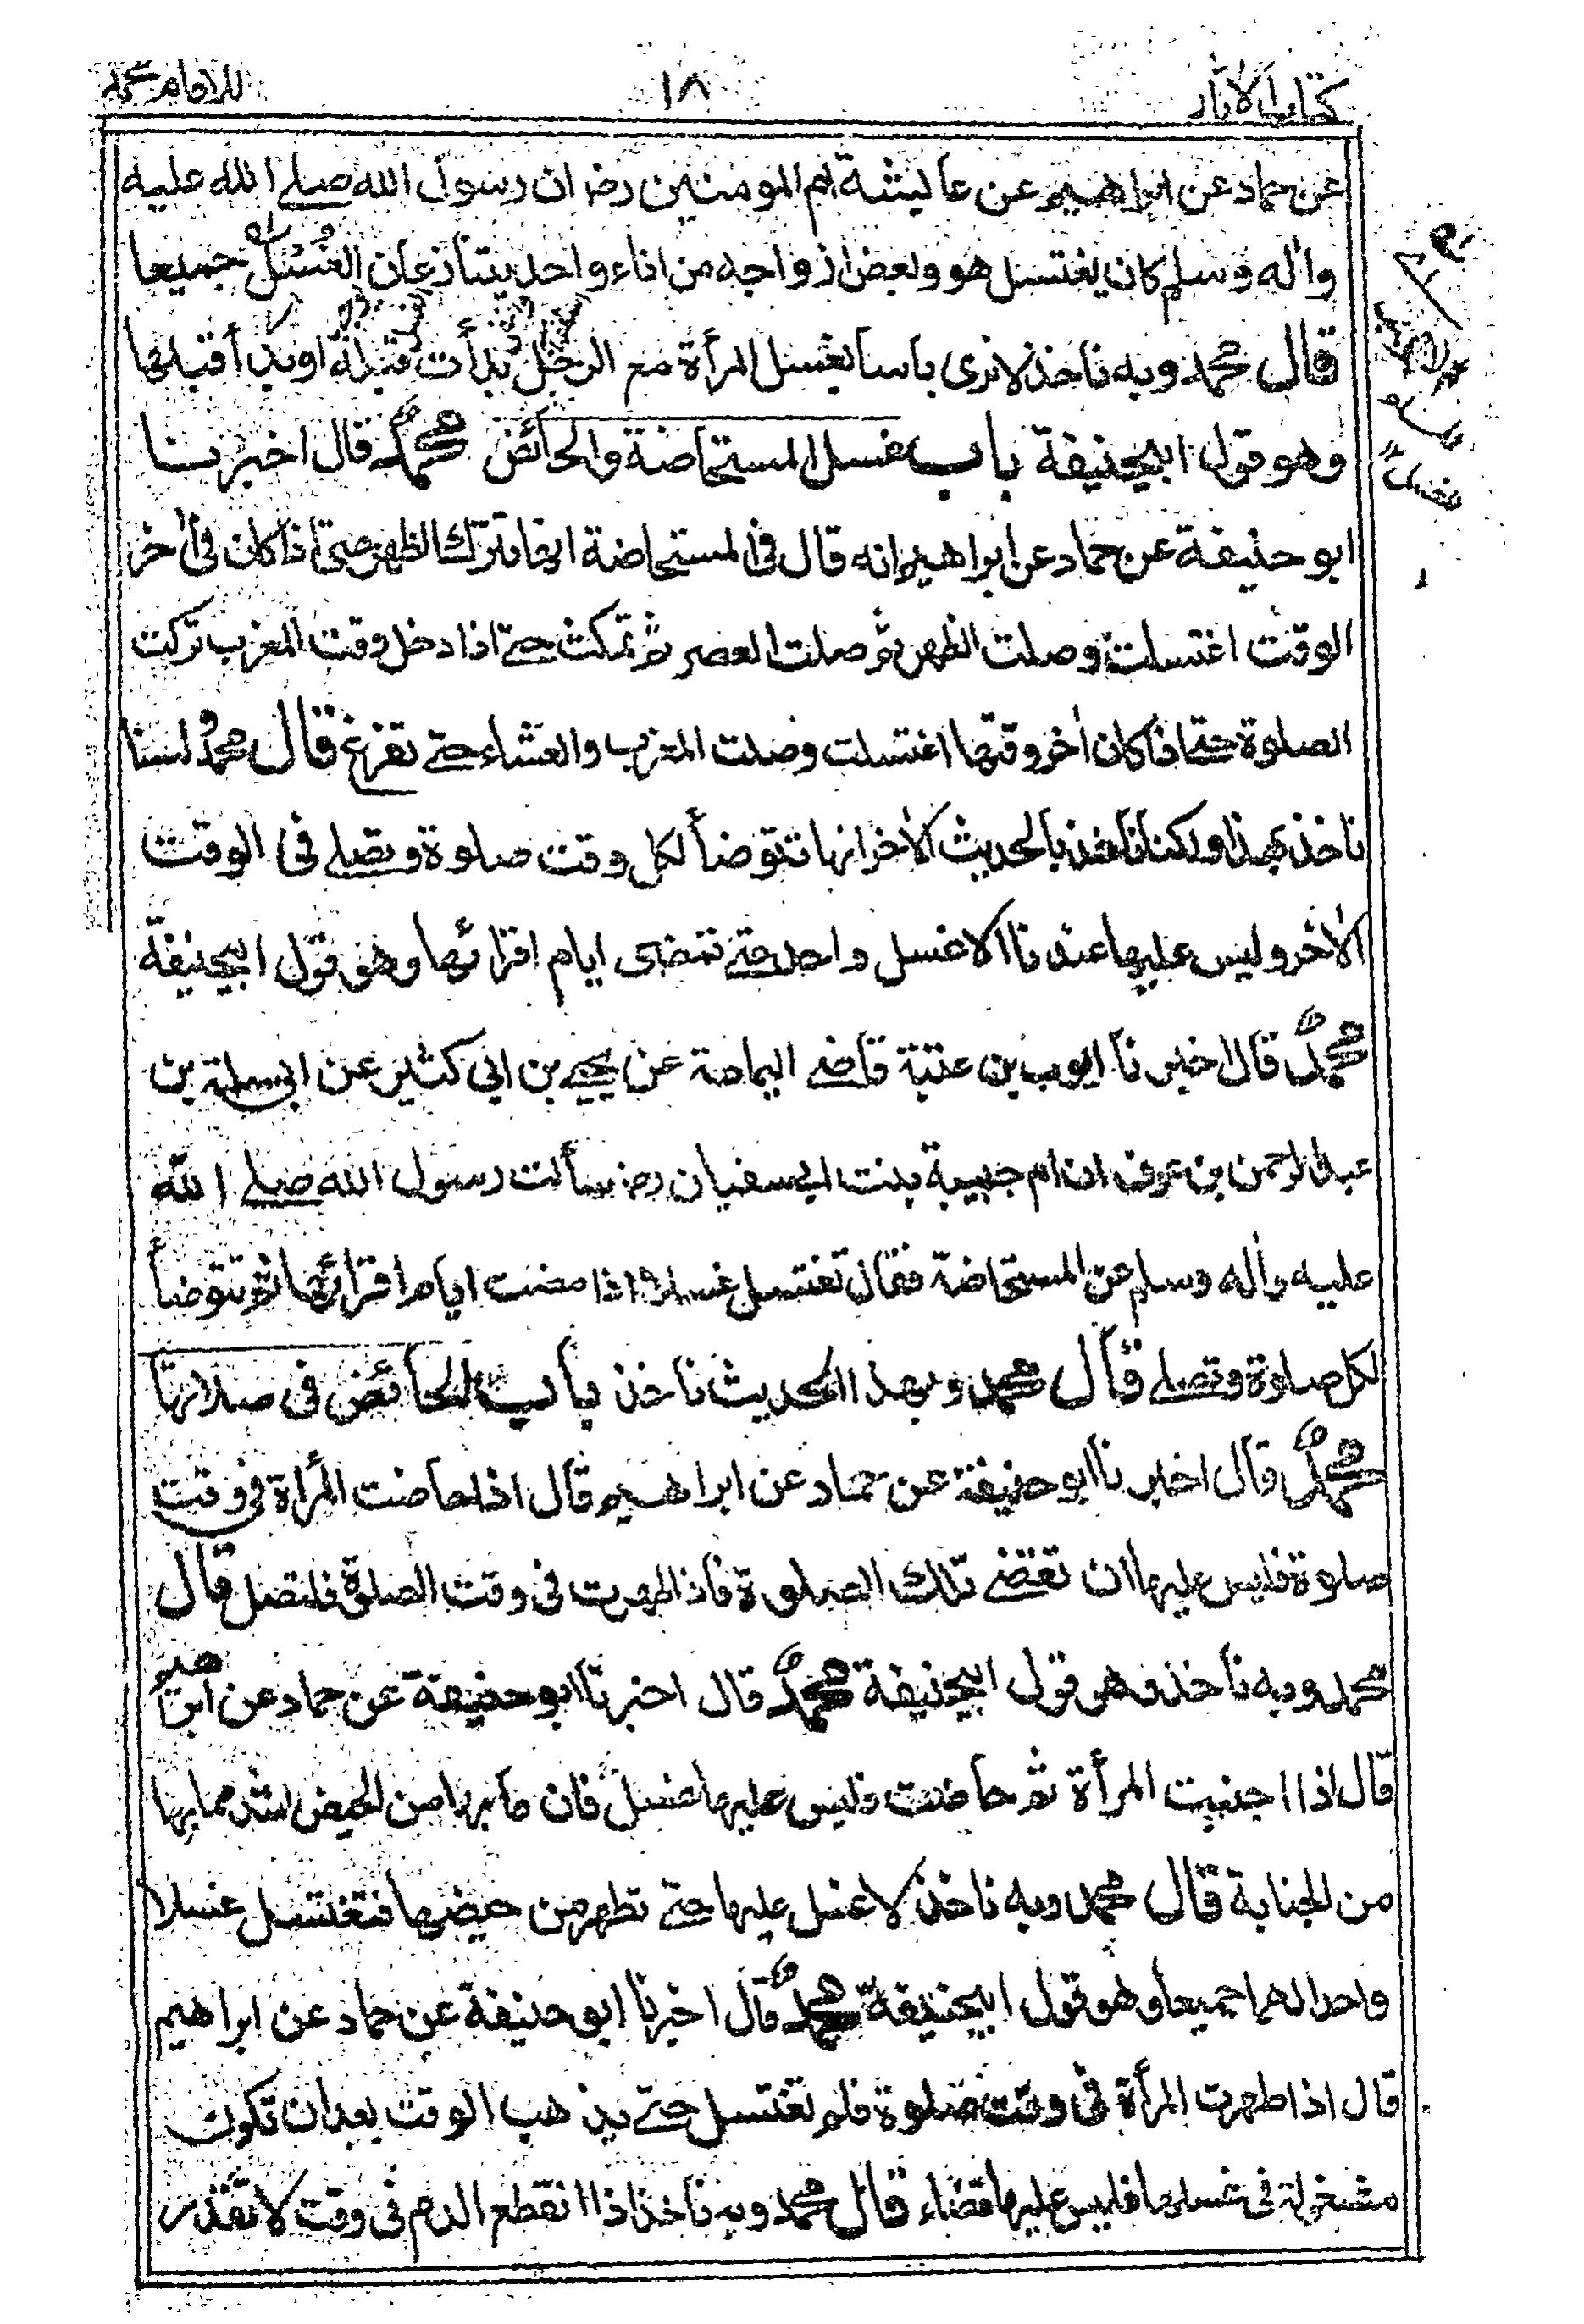 كتاب الآثار ١٨ للامام محمد
عن حماد عن ابراهيم عن عائشة ام المومنين رضـ ان رسول الله صلے الله عليه
واٰله وسلم كان يغتسل هو وبعض ازواجه من اناء واحد يتنازعان الغُسُل جميعا
قال محمد وبه ناخذ لا نرى باسا بغسل المرأة مع الرجل بدأت قبله او بدأ قبلها
وهو قول ابيحنيفة باب غسل المستحاضة والحائض محمدؒ قال اخبرنا
ابو حنيفة عن حماد عن ابراهيم انه قال فى المستحاضة انها تترك الظهر حتے اذا كان فى اٰخر
الوقت اغتسلت وصلت الظهر ثم صلت العصر ثم تمكث حتے اذا دخل وقت المغرب تركت
الصلوة حتے اذا كان اٰخر وقتها اغتسلت وصلت المغرب والعشاء حتے تفرغ قال محمدؒ لسنا
ناخذ بهذا ولكنا ناخذ بالحديث الاٰخر انها تتوضأ لكل وقت صلوة وتصلے فى الوقت
الاٰخر وليس عليها عندنا الا غسل واحد حتے تمضى ايام اقرائها وهو قول ابيحنيفة
محمدؒ قال اخبرنا ايوب بن عتبة قاضے اليمامة عن يحيے بن ابى كثير عن ابى سلمة بن
عبد الرحمن بن عوف ان ام حبيبة بنت ابى سفيان رضـ سألت رسول الله صلے الله
عليه واٰله وسلم عن المستحاضة فقال تغتسل غسلا اذا مضت ايام اقرائها ثم تتوضأ
لكل صلوة وتصلے قال محمد وبهذا الحديث ناخذ باب الحائض فى صلاتها
محمدؒ قال اخبرنا ابو حنيفة عن حماد عن ابراهيم قال اذا حاضت المرأة فى وقت
صلوة فليس عليها ان تقضے تلك الصلوة فاذا طهرت فى وقت الصلوة فلتصل قال
محمد وبه ناخذ وهو قول ابيحنيفة محمدؒ قال اخبرنا ابو حنيفة عن حماد عن ابراهيم
قال اذا اجنبت المرأة ثم حاضت فليس عليها غسل فان ما بها من الحيض اشد مما بها
من الجنابة قال محمد وبه ناخذ لا غسل عليها حتے تطهر من حيضها فتغتسل غسلا
واحدا لهما جميعا وهو قول ابيحنيفة محمدؒ قال اخبرنا ابو حنيفة عن حماد عن ابراهيم
قال اذا طهرت المرأة فى وقت صلوة فلم تغتسل حتے يذهب الوقت بعد ان تكون
مشغولة فى غسلها فليس عليها قضاء قال محمد وبه ناخذ اذا انقطع الدم فى وقت لا تقدر